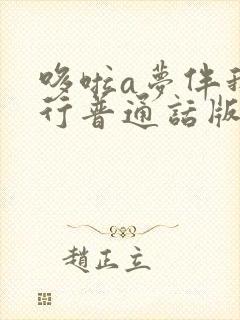 哆啦a夢伴我
行普通話版
趙正立